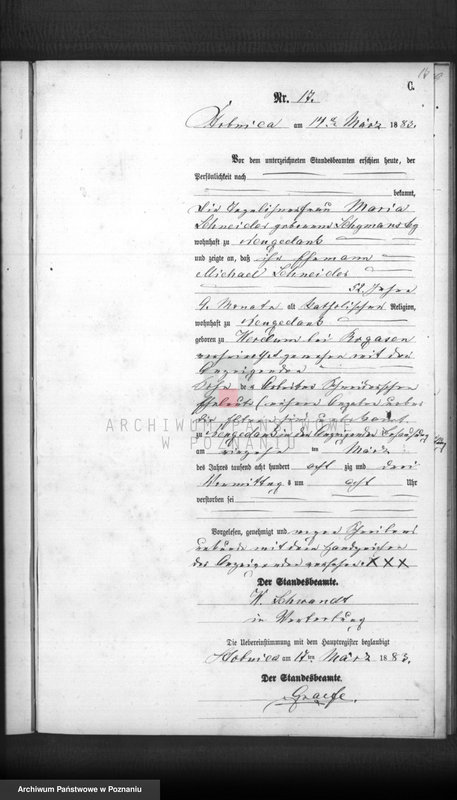 C.
Nr. 17.
am 17 ten März 1883.
Vor dem unterzeichneten Standesbeamten erschien heute, der
Persönlichkeit nach
bekannt,
die Tagelöhnerfrau Maria
Schneider geborene
wohnhaft zu Neugedank
und zeigte an, daß ihr Ehemann
Michael Schneider
52 Jahre
9 Monate alt katholischer Religion,
wohnhaft zu Neugedank
geboren zu bei Rogasen
verheirathet gewesen mit der
Anzeigenden
Sohn des Arbeiter Schneiderschen
Eheleute (nähere Angaben
die unbekannt
zu Neugedank in der Anzeigenden Behausung
am ten März
des Jahres tausend acht hundert acht zig und drei
Vormittags um acht Uhr
verstorben sei
Vorgelesen, genehmigt und wegen Schreibens
unkunde mit dem Handzeichen
der Anzeigenden versehen. XXX
Der Standesbeamte.
W. Schwandt
in Vertretung
Die Uebereinstimmung mit dem Hauptregister beglaubigt
am 17 ten März 1883.
Der Standesbeamte.
Graefe.
ARCHIWUM PAŃSTWOWE
W POZNANIU
Archiwum Państwowe w Poznaniu